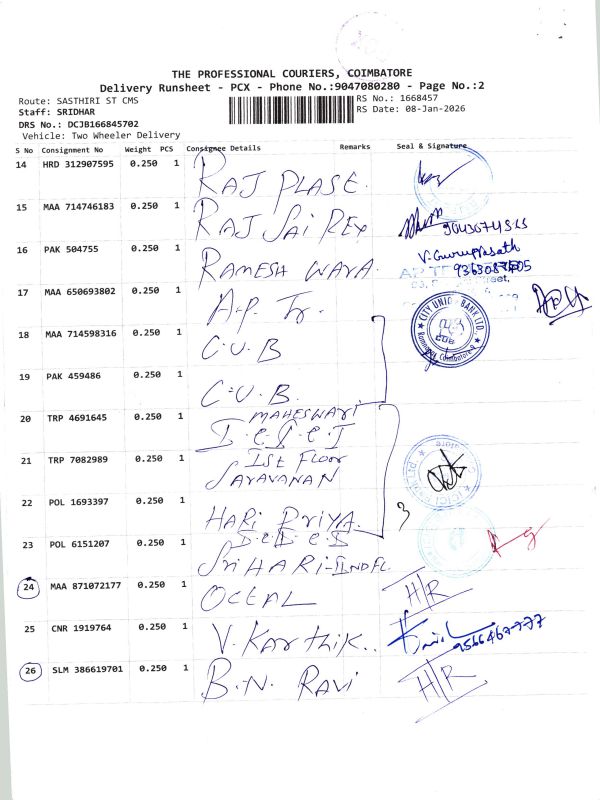 THE PROFESSIONAL COURIERS, COIMBATORE
Delivery Runsheet - PCX - Phone No.:9047080280 - Page No.:2
Route: SASTHIRI ST CMS RS No.: 1668457
Staff: SRIDHAR RS Date: 08-Jan-2026
DRS No.: DCJB166845702
Vehicle: Two Wheeler Delivery
S No Consignment No Weight PCS Consignee Details Remarks Seal & Signature
14 HRD 312907595 0.250 1 RAJ PLASE.
15 MAA 714746183 0.250 1 RAJ SAI REX
16 PAK 504755 0.250 1 RAMESH WARA. V. Guruprasath
17 MAA 650693802 0.250 1 A.P. Tr.
18 MAA 714598316 0.250 1 C.U.B CITY UNION BANK LTD.
CUB
19 PAK 459486 0.250 1 C.U.B.
20 TRP 4691645 0.250 1 MAHESWARI
21 TRP 7082989 0.250 1 IST FLOOR
SARAVANAN
22 POL 1693397 0.250 1 HARI PRIYA. 3
23 POL 6151207 0.250 1 SRI HARI-
24 MAA 871072177 0.250 1 OCTAL H/R
25 CNR 1919764 0.250 1 V. Karthik.. 9566467777
26 SLM 386619701 0.250 1 B.N. RAVI H/R